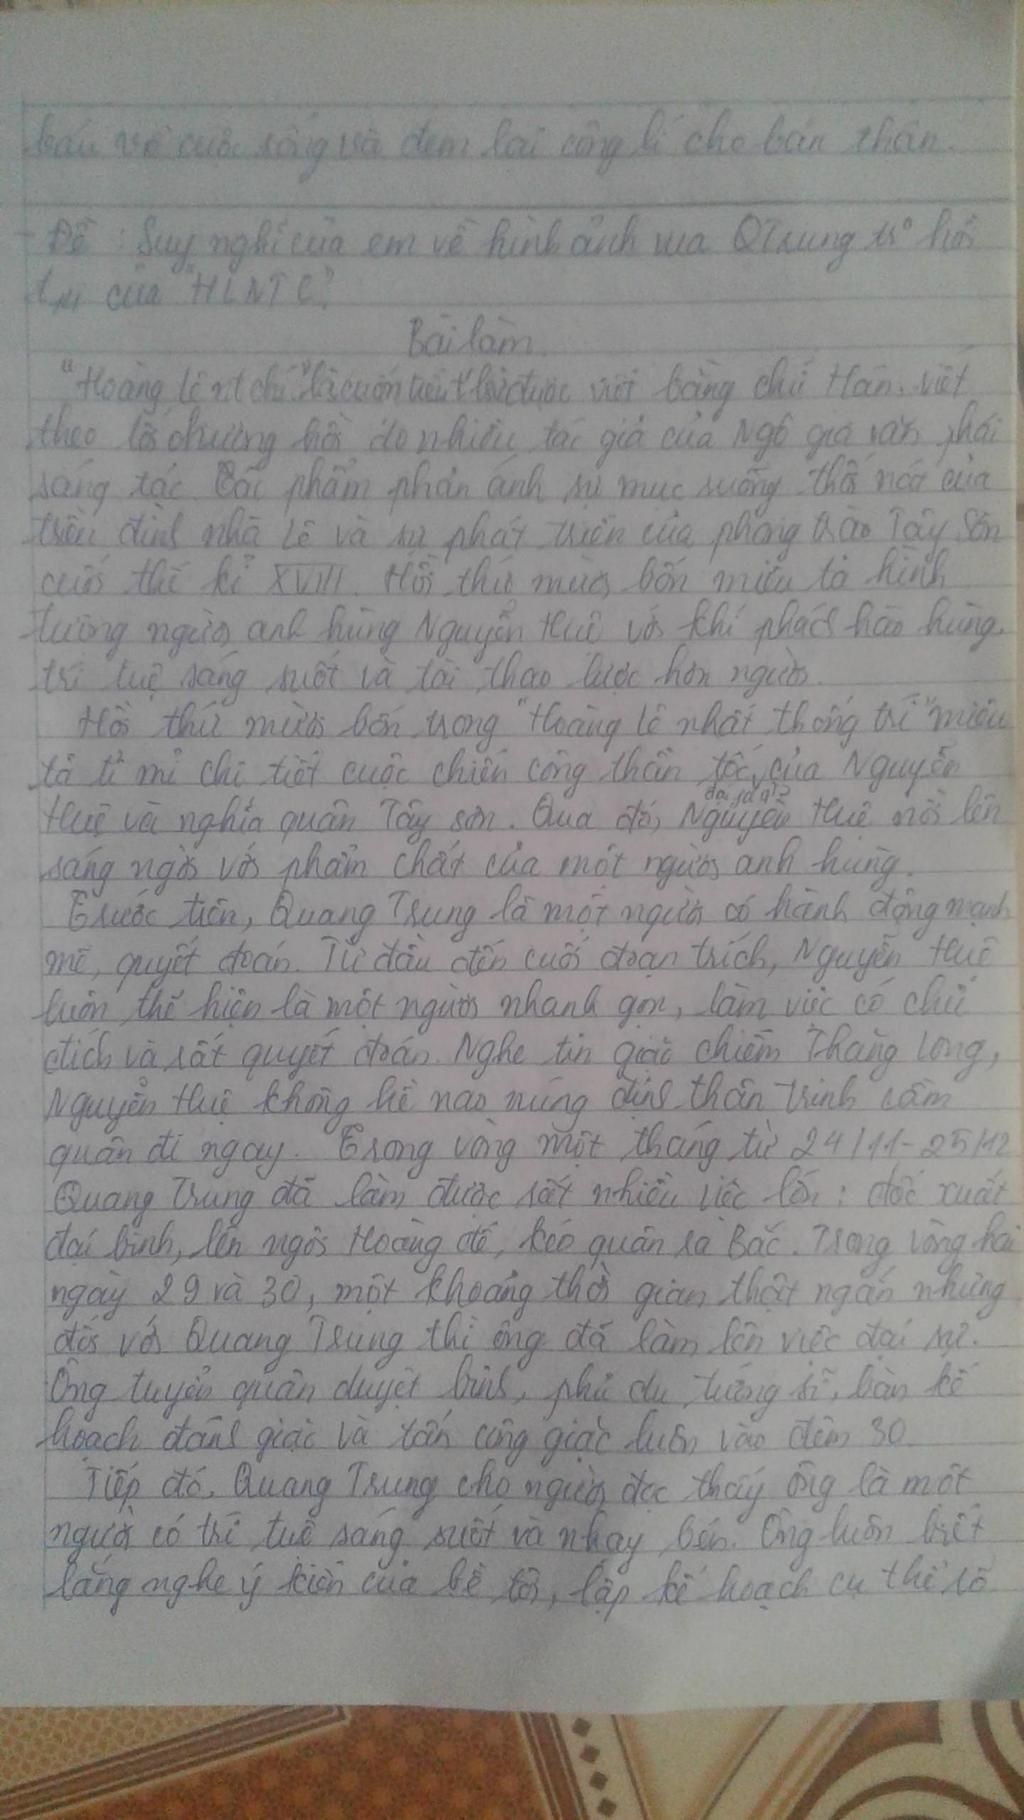 báu về cuộc sống và đem lại công lí cho bản thân.
- Đề : Suy nghĩ của em về hình ảnh vua QTrung tr° hồi
của "HLNTC"?
Bài làm.
"Hoàng Lê nt chí" là cuốn tiểu t' lsử được viết bằng chữ Hán. viết
theo lối chương hồi do nhiều tác giả của Ngô gia văn phái
sáng tác. Tác phẩm phản ánh sự mục ruỗng thối nát của
triều đình nhà Lê và sự phát triển của phong trào Tây Sơn
cuối thế kỉ XVIII. Hồi thứ mười bốn miêu tả hình
tượng người anh hùng Nguyễn Huệ với khí phách hào hùng.
trí tuệ sáng suốt và tài thao lược hơn người.
Hồi thứ mười bốn trong "Hoàng Lê nhất thống trí" miêu
tả tỉ mỉ chi tiết cuộc chiến công thần tốc của Nguyễn
Huệ và nghĩa quân Tây sơn. Qua đó, Nguyễn Huệ nổi lên
sáng ngời với phẩm chất của một người anh hùng.
Trước tiên, Quang Trung là một người có hành động mạnh
mẽ, quyết đoán. Từ đầu đến cuối đoạn trích, Nguyễn Huệ
luôn thể hiện là một người nhanh gọn, làm việc có chủ
đích và rất quyết đoán. Nghe tin giặc chiếm Thăng Long,
Nguyễn Huệ không hề nao núng định thân trinh cầm
quân đi ngay. Trong vòng một tháng từ 24/11-25/12
Quang Trung đã làm được rất nhiều việc lớn : đốc xuất
đại binh, lên ngôi Hoàng đế, kéo quân ra Bắc. Trong vòng hai
ngày 29 và 30, một khoảng thời gian thật ngắn nhưng
đối với Quang Trung thì ông đã làm lên việc đại sự.
Ông tuyển quân duyệt binh, phủ dụ tướng sĩ, bàn kế
hoạch đánh giặc và tấn công giặc luôn vào đêm 30.
Tiếp đó, Quang Trung cho người đọc thấy ông là một
người có trí tuệ sáng suốt và nhạy bén. Ông luôn biết
lắng nghe ý kiến của bề tôi, lập kế hoạch cụ thể rõ